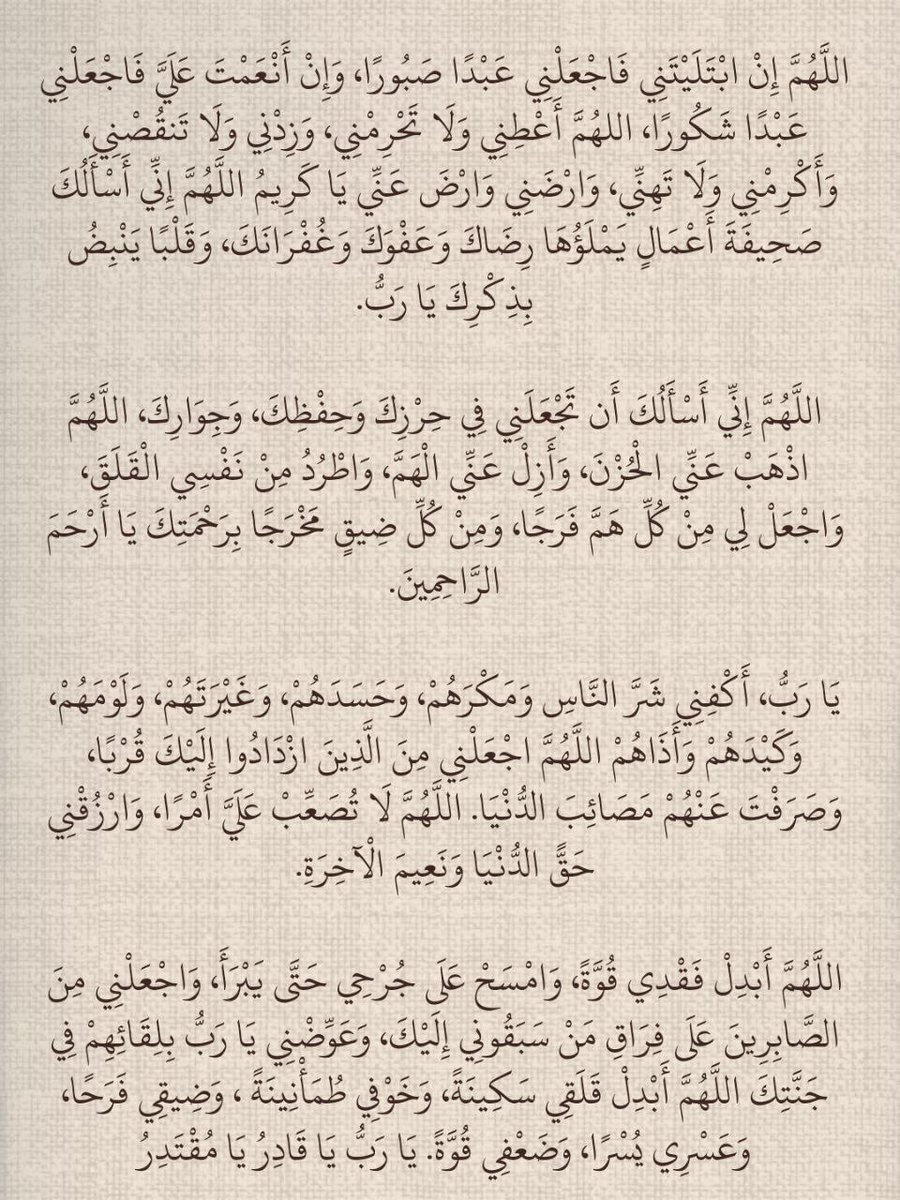 اللَّهُمَّ إِنْ ابْتَلَيْتَنِي فَاجْعَلْنِي عَبْدًا صَبُورًا، وَإِنْ أَنْعَمْتَ عَلَيَّ فَاجْعَلْنِي
عَبْدًا شَكُورًا، اللهُمَّ أَعْطِنِي وَلَا تَحْرِمْنِي، وَزِدْنِي وَلَا تَنقُصْنِي،
وَأَكْرِمْنِي وَلَا تَهِنِّي، وَارْضَنِي وَارْضَ عَنِّي يَا كَرِيمُ اللَّهُمَّ إِنِّي أَسْأَلُكَ
صَحِيفَةَ أَعْمَالٍ يَمْلَؤُهَا رِضَاكَ وَعَفْوَكَ وَغُفْرَانَكَ، وَقَلْبًا يَنْبِضُ
بِذِكْرِكَ يَا رَبُّ.

اللَّهُمَّ إِنِّي أَسْأَلُكَ أَن تَجْعَلَنِي فِي حِرْزِكَ وَحِفْظِكَ، وَجِوَارِكَ، اللَّهُمَّ
اذْهَبْ عَنِّي الْحُزْنَ، وَأَزِلْ عَنِّي الْهَمَّ، وَاطْرُدُ مِنْ نَفْسِي الْقَلَقَ،
وَاجْعَلْ لِي مِنْ كُلِّ هَمَّ فَرَجًا، وَمِنْ كُلِّ ضِيقٍ مَخْرَجًا بِرَحْمَتِكَ يَا أَرْحَمَ
الرَّاحِمِينَ.

يَا رَبُّ، أَكْفِنِي شَرَّ النَّاسِ وَمَكْرَهُمْ، وَحَسَدَهُمْ، وَغَيْرَتَهُمْ، وَلَوْمَهُمْ،
وَكَيْدَهُمْ وَأَذَاهُمْ اللَّهُمَّ اجْعَلْنِي مِنَ الَّذِينَ ازْدَادُوا إِلَيْكَ قُرْبًا،
وَصَرَفْتَ عَنْهُمْ مَصَائِبَ الدُّنْيَا. اللَّهُمَّ لَا تُصَعِّبْ عَلَيَّ أَمْرًا، وَارْزُقْنِي
حَقَّ الدُّنْيَا وَنَعِيمَ الْآخِرَةِ.

اللَّهُمَّ أَبْدِلْ فَقْدِي قُوَّةً، وَامْسَحْ عَلَى جُرْحِي حَتَّى يَبْرَأَ، وَاجْعَلْنِي مِنَ
الصَّابِرِينَ عَلَى فِرَاقِ مَنْ سَبَقُونِي إِلَيْكَ، وَعَوِّضْنِي يَا رَبُّ بِلِقَائِهِمْ فِي
جَنَّتِكَ اللَّهُمَّ أَبْدِلْ قَلَقِي سَكِينَةً، وَخَوْفِي طُمَأْنِينَةً ، وَضِيقِي فَرَحًا،
وَعَسْرِي يُسْرًا، وَضَعْفِي قُوَّةً. يَا رَبُّ يَا قَادِرُ يَا مُقْتَدِرُ